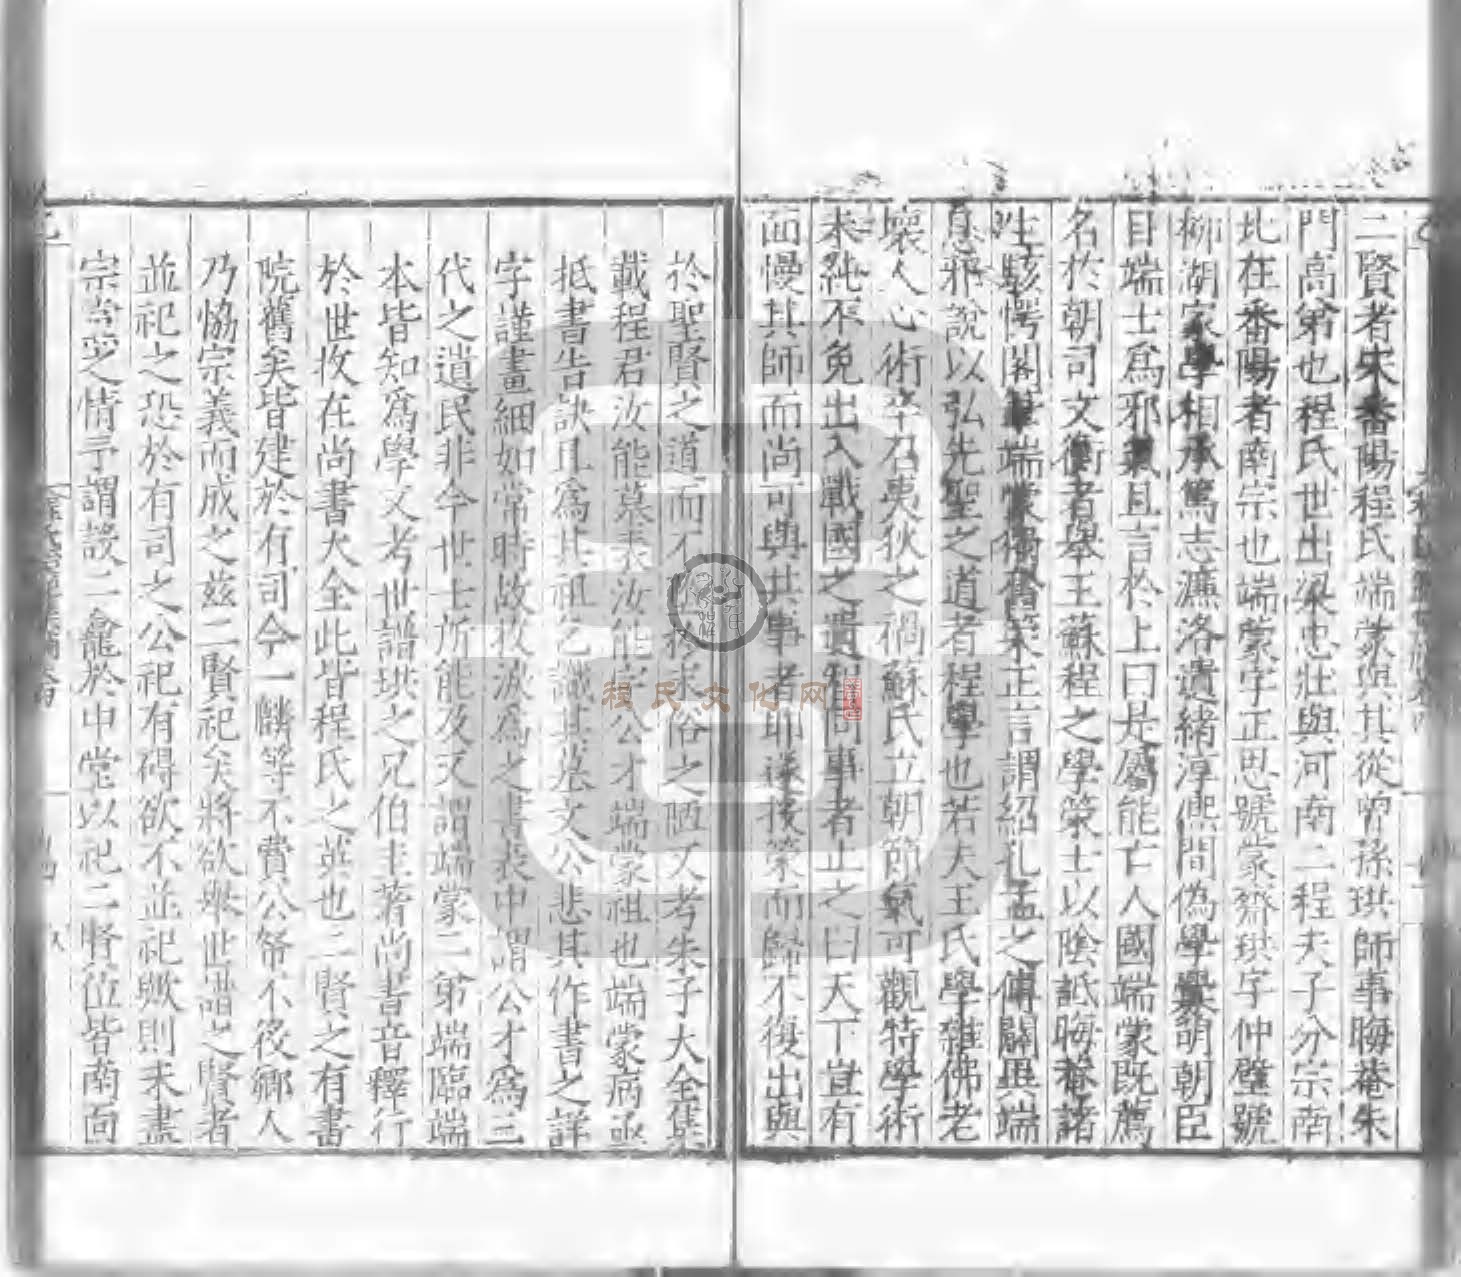 二賢者宋番陽程氏端蒙與其從曾孫珙師事晦菴朱
門高第也程氏世出梁忠壯與河南二程夫子分宗南
北在番陽者南宗也端蒙字正思號蒙齋珙字仲璧號
柳湖家學相承篤志濂洛遺緒淳熙間偽學釁萌朝臣
目端士為邪氣且言於上曰是屬能亡人國端蒙既薦
名於朝司文衡者舉王蘇程之學策士以陰詆晦菴諸
生駭愕閣筆端蒙奮筆正言謂紹孔孟之傳闢異端
息邪說以弘先聖之道者程學也若夫王氏學雜佛老
壞人心術卒召夷狄之禍蘇氏立朝節氣可觀特學術
未純不免出入戰國之遺智同事者止之曰天下豈有
而慢其師而尚可與共事者耶遂投策而歸不復出與
於聖賢之道而不 俗之陋又考朱子大全集
載程君汝能墓表汝能字公才端蒙祖也端蒙病亟
抵書告訣且為其祖乞識其墓文公悲其作書之詳
字謹畫細如常時故拔淚為之書表中謂公才為三
代之遺民非今世士所能及又謂端蒙二弟端臨端
本皆知為學又考世譜珙之兄伯圭著尚書音釋行
於世收在尚書大全此皆程氏之英也二賢之有書
院舊矣皆建於有司今一麟等不費公帑不役鄉人
乃恊宗義而成之茲二賢祀矣將欲舉世譜之賢者
並祀之恐於有司之公祀有碍欲不並祀歟則未盡
宗崇 之情予謂設二龕於中堂以祀二賢位皆南面
程氏文化网